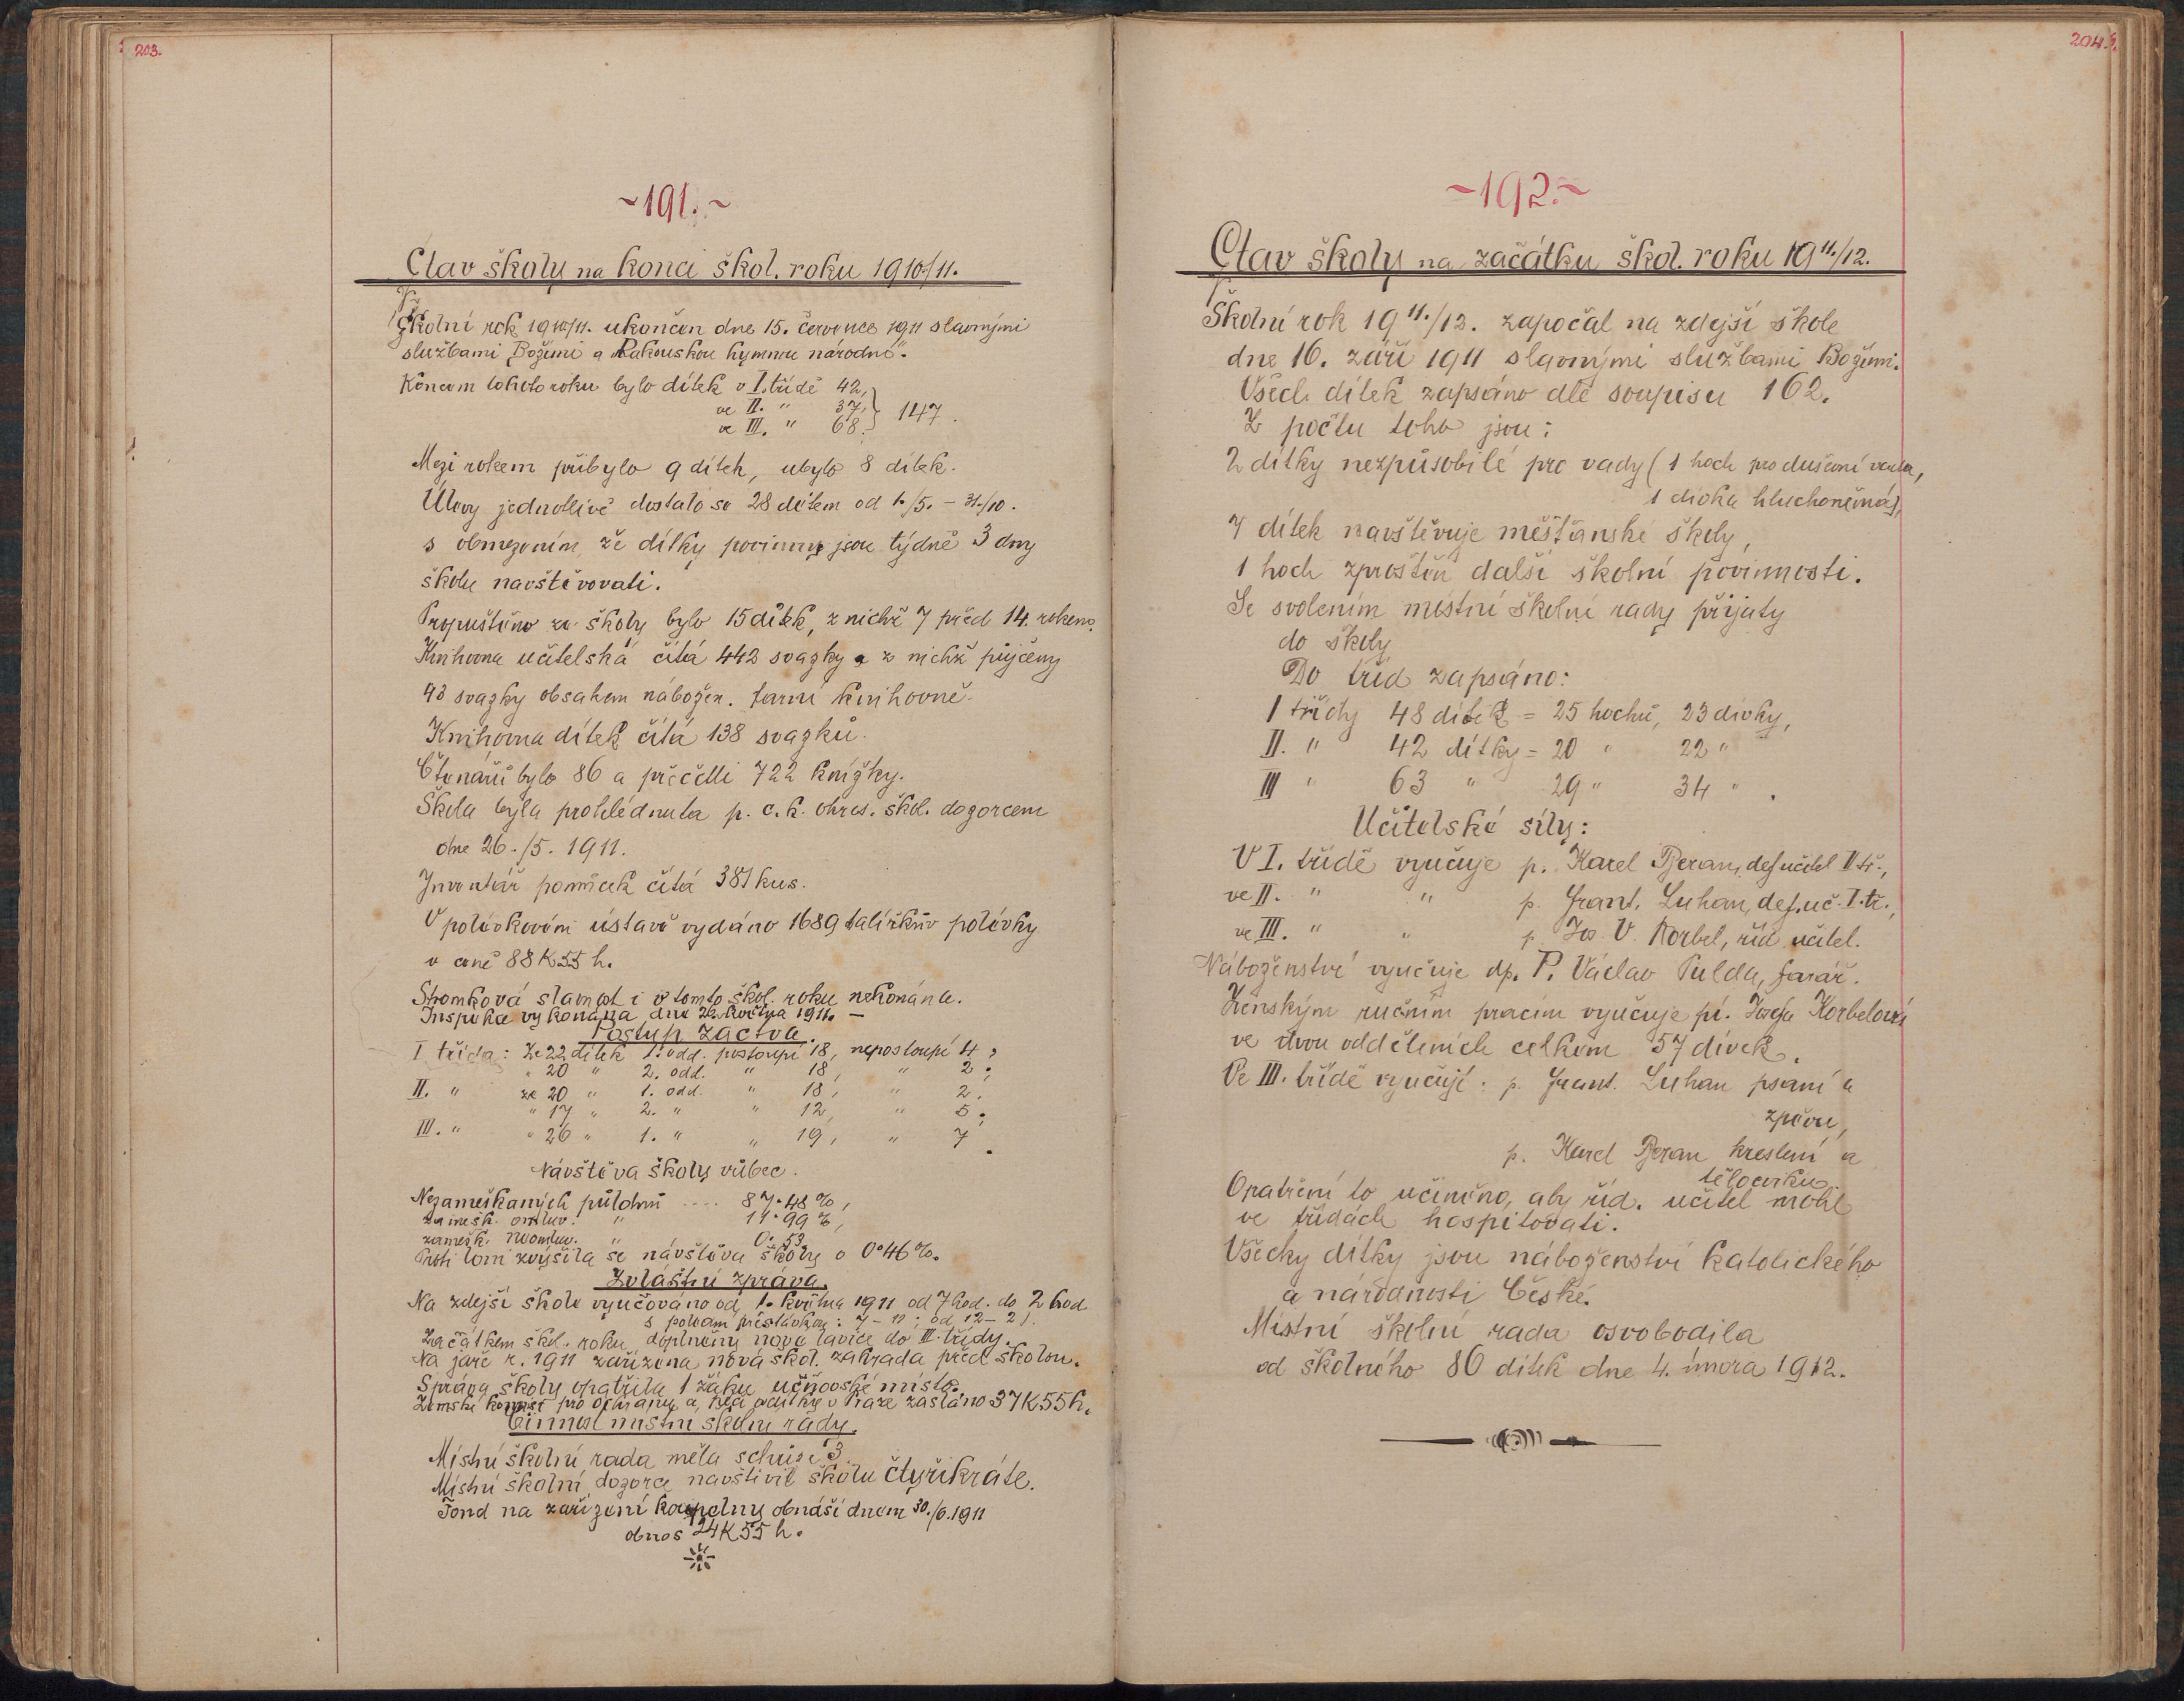 203.
~191.~
Stav školy na konci škol. roku 1910/11.
Školní rok 1910/11. ukončen dne 15. července 1911 slavnými
službami Božími a „Rakouskou hymnou národní“.
Koncem tohoto roku bylo dítek v I. třídě 42,
ve II. " 37, } 147.
ve III. " 68.
Mezi rokem přibylo 9 dítek, ubylo 8 dítek.
Úlevy jednotlivé dostalo se 28 dětem od 1./5. – 31./10.
s obmezením, že dítky povinny jsou týdně 3 dny
školu navštěvovati.
Propuštěno ze školy bylo 15 dítek, z nichž 7 před 14. rokem.
Knihovna učitelská čítá 442 svazky z nichž půjčeny
93 svazky obsahem nábožen. farní knihovně.
Knihovna dítek čítá 138 svazků.
Čtenářů bylo 86 a přečetli 722 knížky.
Škola byla prohlédnuta p. c. k. okres. škol. dozorcem
dne 26./5. 1911.
Inventář pomůcek čítá 381 kus.
V polévkovém ústavě vydáno 1689 talířkův polévky
v ceně 88 K 55 h.
Stromková slavnost i v tomto škol. roku nekonána.
Inspekce vykonána dne 26. května 1911. –
Postup žactva.
I třída: Ze 22 dítek 1. odd. postoupí 18, nepostoupí 4;
" 20 " 2. odd. " 18, " 2;
II. " ze 20 " 1. odd. " 18, " 2,
" 17 " 2. " " 12, " 5;
III. " " 26 " 1. " " 19, " 7.
Návštěva školy vůbec.
Nezameškaných půldnů .... 87·48 %,
zamešk. omluv. " 11·99 %,
zamešk. neomluv. " 0·53.
Proti loni zvýšila se návštěva školy o 0·46 %.
Zvláštní zpráva.
Na zdejší škole vyučováno od 1. května 1911 od 7 hod. do 2 hod.
s poledm přestávkou: 7 – 11; od 12 – 2).
Začátkem škol. roku doplněny nové lavice do III. třídy.
Na jaře r. 1911 zařízena nová škol. zahrada před školou.
Správa školy opatřila 1 žáku učňovské místo.
Zemské komisi pro ochranu a péči o dítky v Praze zasláno 37 K 55 h.
Činnost místní školní rady.
Místní školní rada měla schůze 3.
Místní školní dozorce navštívil školu čtyřikráte.
Fond na zařízení koupelny obnáší dnem 30./6. 1911
obnos 24 K 55 h.
204.
~192.~
Stav školy na začátku škol. roku 1911./12.
Školní rok 1911./12. započal na zdejší škole
dne 16. září 1911 slavnými službami Božími.
Všech dítek zapsáno dle soupisu 162.
Z počtu toho jsou:
2 dítky nezpůsobilé pro vady (1 hoch pro duševní vadu,
1 dívka hluchoněmá),
7 dítek navštěvuje měšťanské školy,
1 hoch zproštěn další školní povinnosti.
Se svolením místní školní rady přijaty
do školy
Do tříd zapsáno:
I třídy 48 dítek = 25 hochů, 23 dívky,
II. " 42 dítky = 20 " 22 "
III " 63 " 29 " 34 " .
Učitelské síly:
V I. třídě vyučuje p. Karel Beran, def. učitel II tř.,
ve II. " " p. Frant. Luhan, def. uč. I. tř.,
ve III. " " p. Jos. V. Korbel, říd. učitel.
Náboženství vyučuje dp. P. Václav Pulda, farář.
Ženským ručním pracím vyučuje pí. Josefa Korbelová
ve dvou odděleních celkem 57 dívek.
Ve III. třídě vyučují: p. Frant. Luhan psaní a
zpěvu,
p. Karel Beran kreslení a
tělocviku.
Opatření to učiněno, aby říd. učitel mohl
ve třídách hospitovati.
Všecky dítky jsou náboženství katolického
a národnosti České.
Místní školní rada osvobodila
od školného 86 dítek dne 4. února 1912.